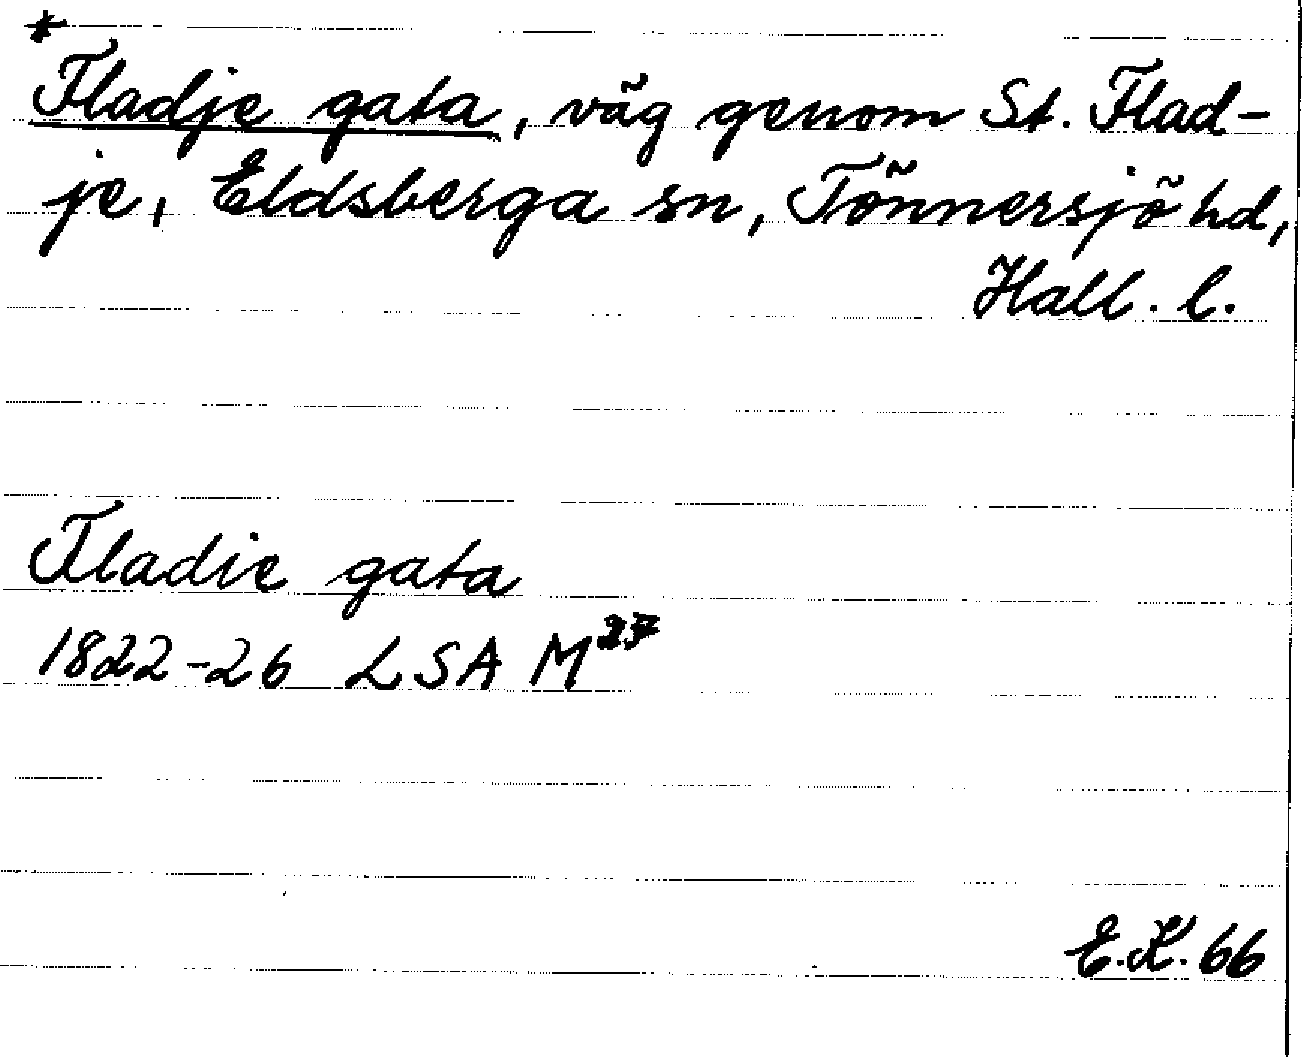 *
Fladje gata, väg genom St. Flad-
je, Eldsberga sn, Tönnersjö hd,
Hall. l.
Fladie gata
1822-26 LSA M²⁷
E.K. 66